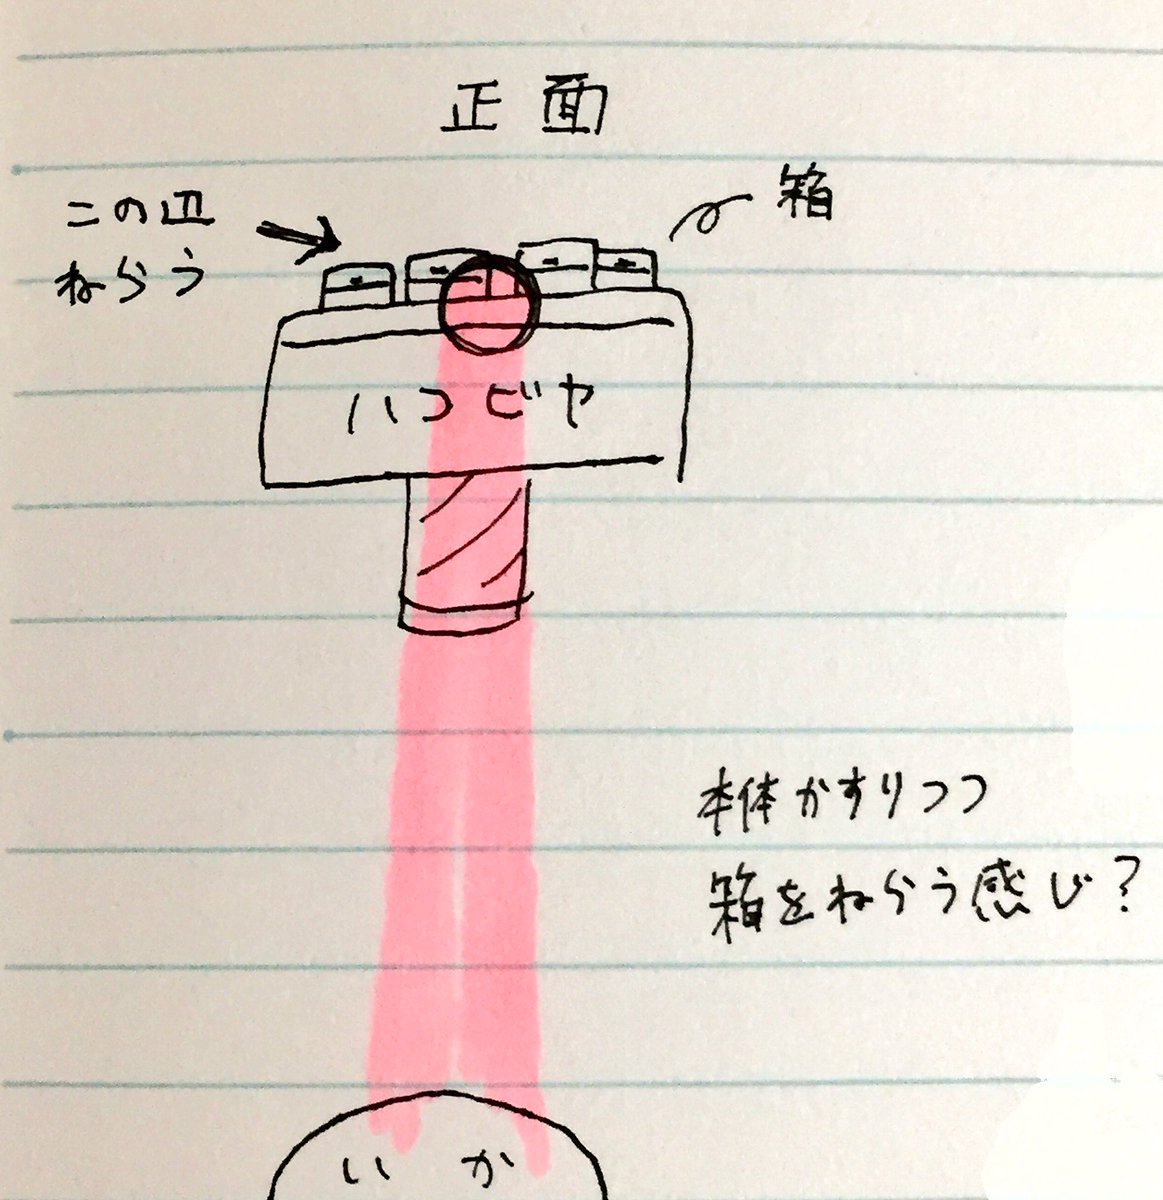 正面
箱
この辺
ねらう
ハコビヤ
本体かすりつつ
箱をねらう感じ?
いか